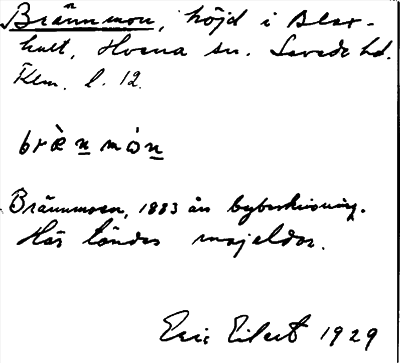 Brännmon, höjd i Blax-
hult, Hvena sn. Sevede hd.
Klm. l. 12.
bræ̀n mòn
Brännmoen, 1883 års bybeskrivning.
Här tändes majeldar.
Eric Eilert 1929